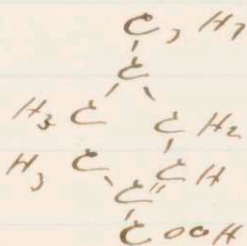 C3H7
C
H3C CH2
H3C CH
C
COOH